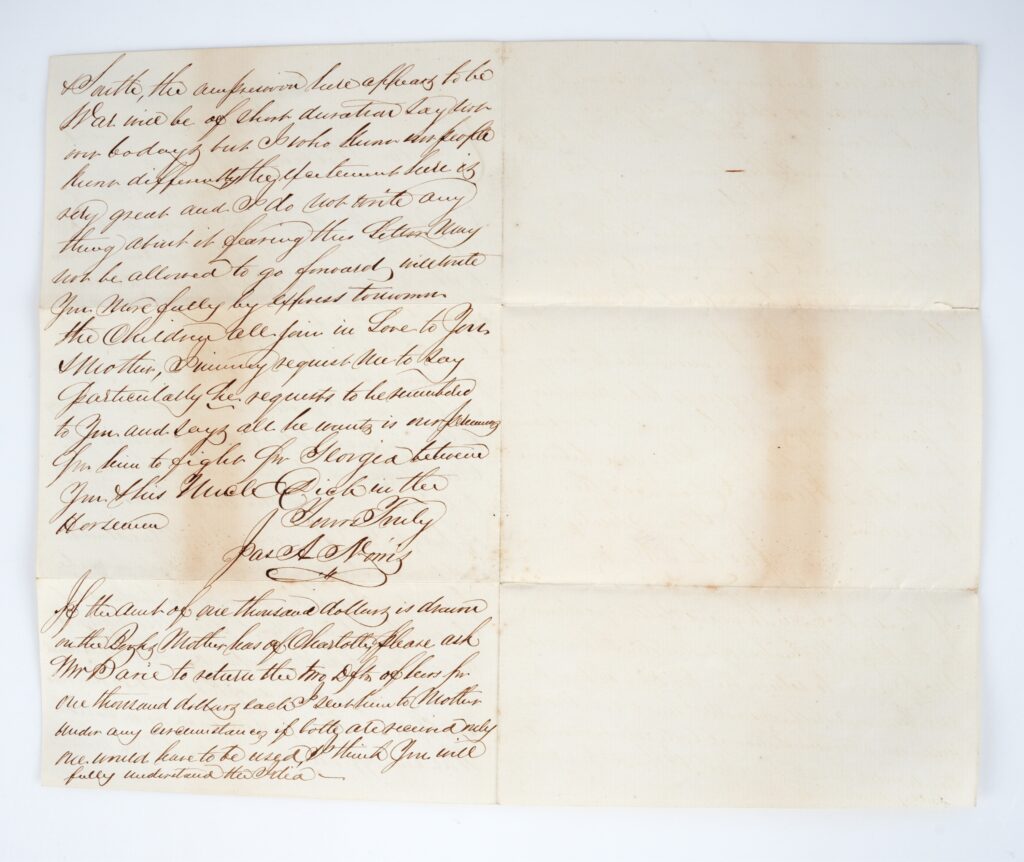 & South, the impression here appears to be
War will be of short duration say not
over 60 days but I who know our people
know differently the excitement here is
very great and I do not write any
thing about it fearing this Letter May
not be allowed to go forward, will write
You More fully by express tomorrow
the Children all join in Love to You
& Mother, request Me to say
particularly he requests to be remembered
to You and says all he wants is our
for him to fight for Georgia between
You & his Uncle Dick in the
Horsemen
Yours Truly
Jas A Norris
If the amt of one thousand dollars is drawn
on the Bank Mother has of Charlotte, please ask
Mr to return the two Dfts of hers for
one thousand dollars each I sent him to Mother
under any circumstances, if both are received only
one would have to be used, I think You will
fully understand the Idea